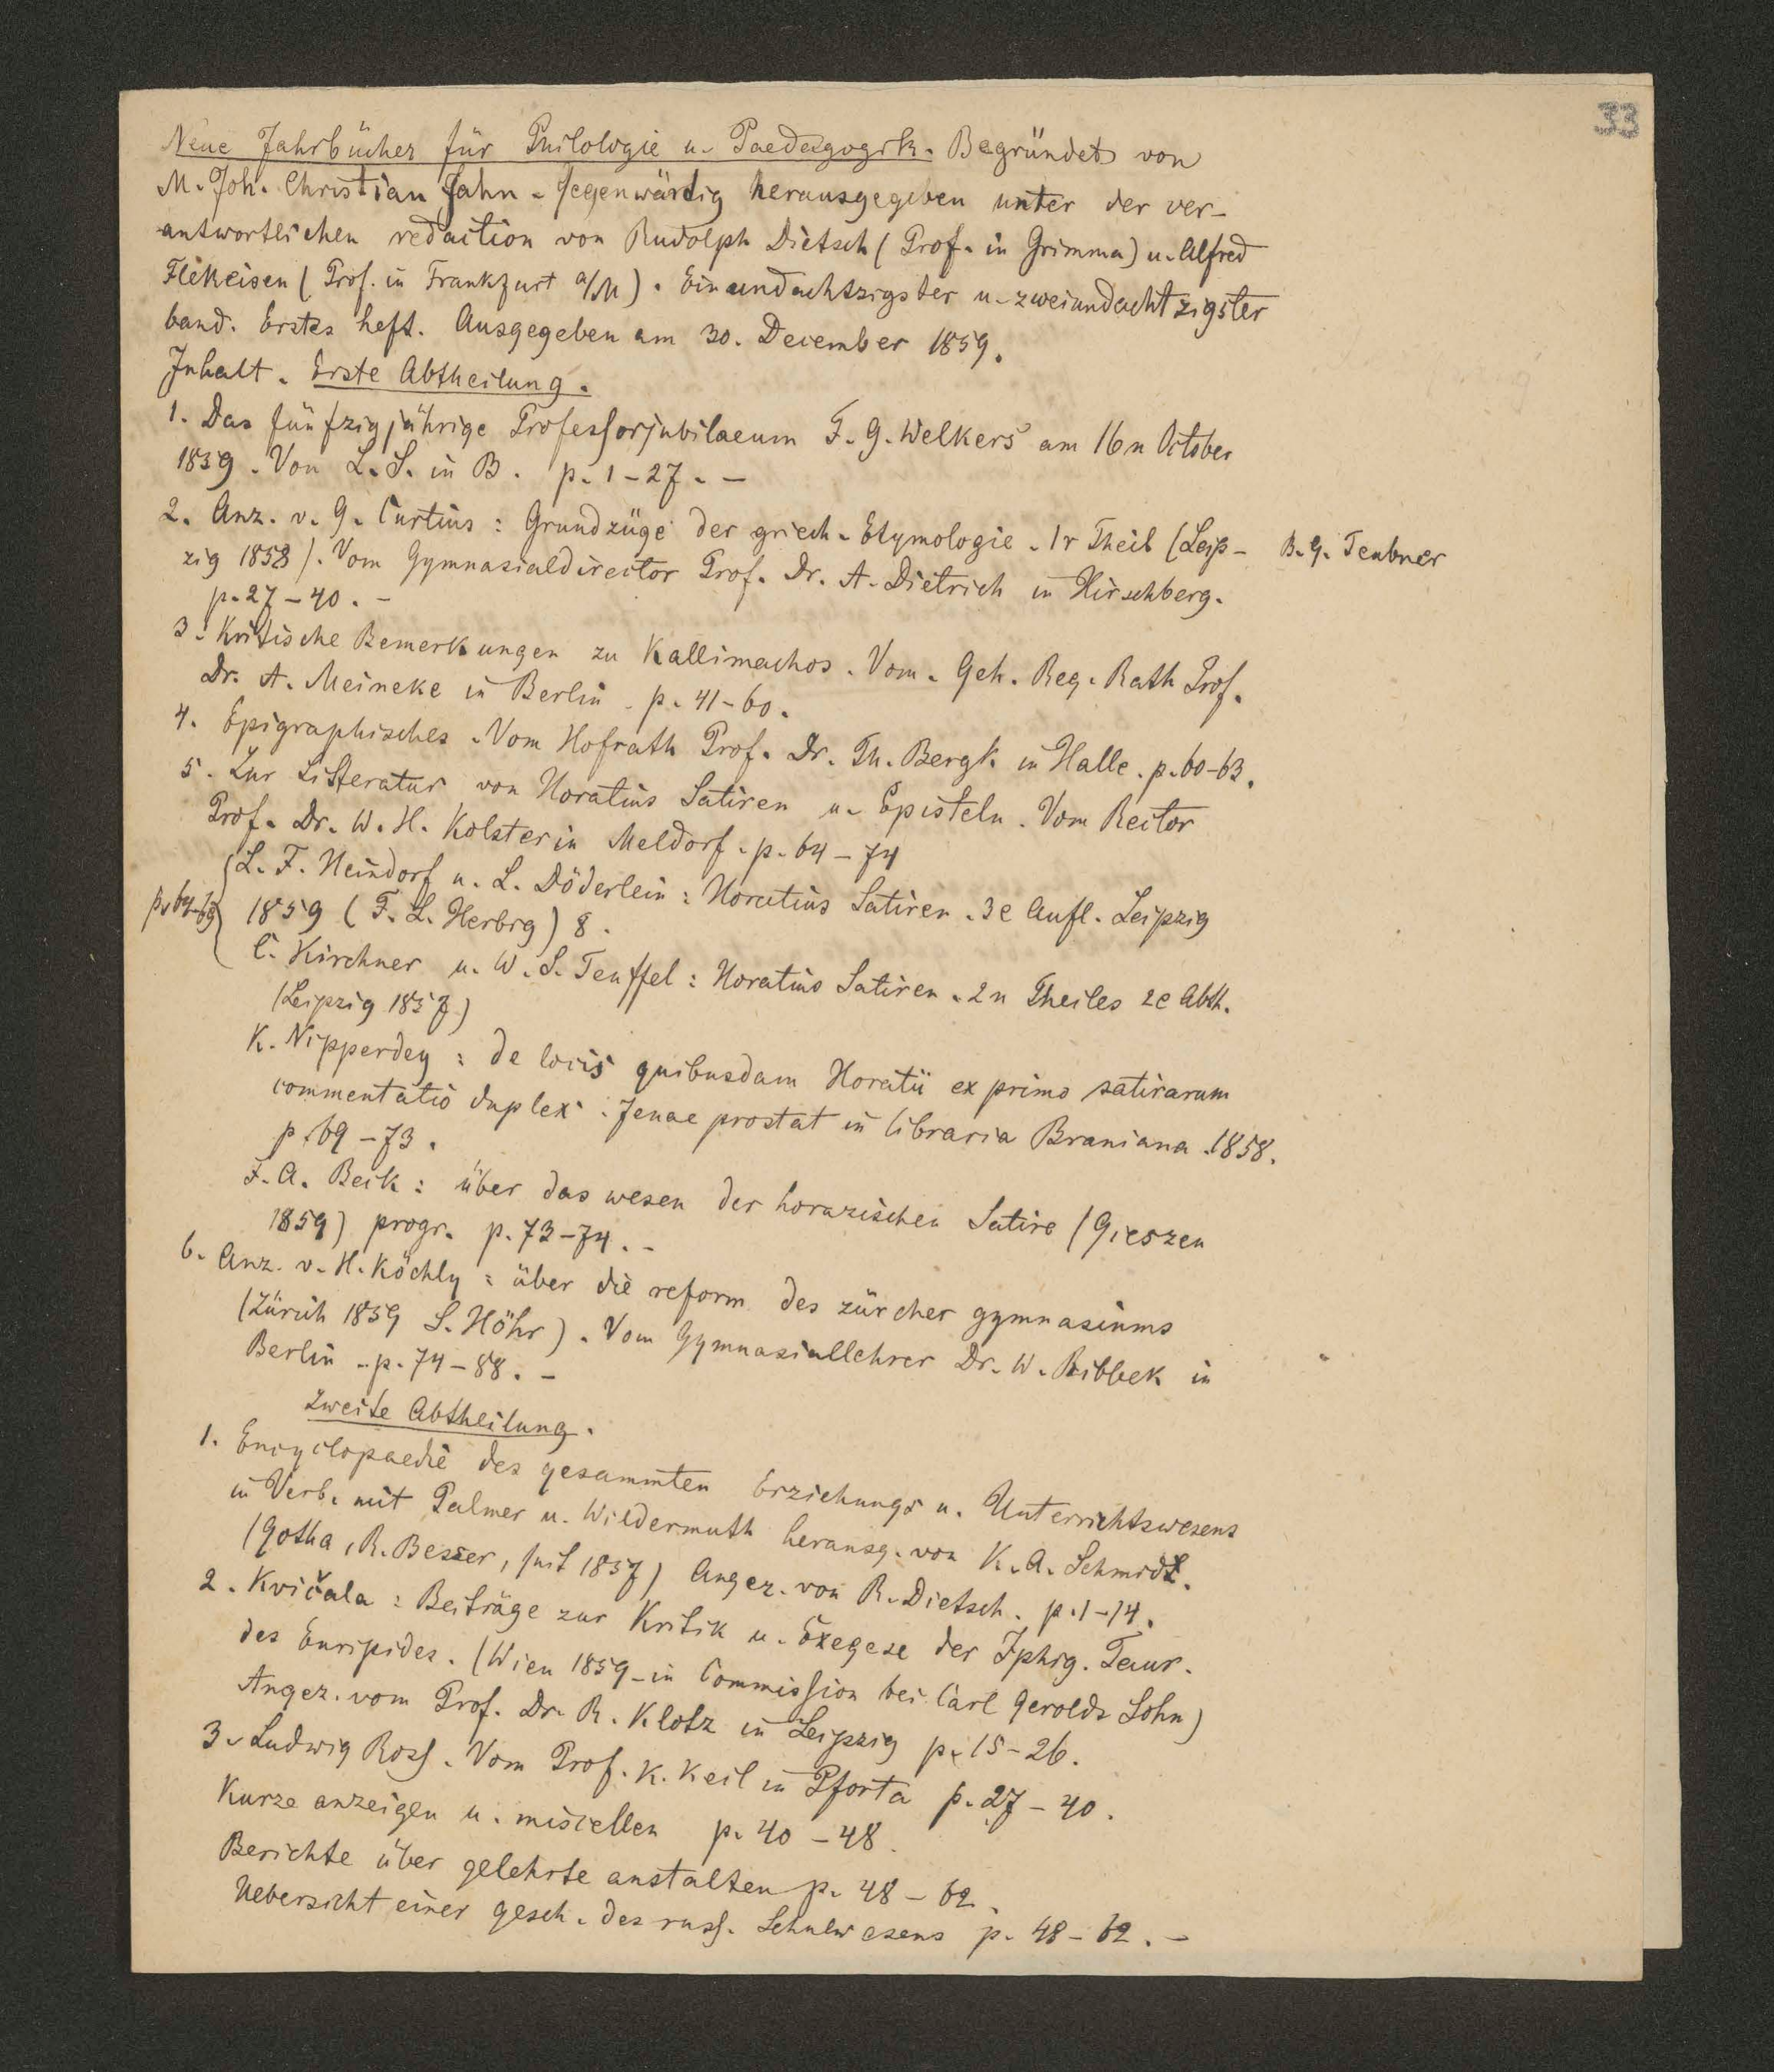 33
Neue Jahrbücher für Philologie u. Paedagogik. Begründet von
M. Joh. Christian Jahn. Gegenwärtig herausgegeben unter der ver-
antwortlichen redaction von Rudolph Dietsch (Prof. in Grimma) u. Alfred
Fleckeisen (Prof. in Frankfurt a/M). Einundachtzigster u. zweiundachtzigster
band. Erstes heft. Ausgegeben am 30. December 1859.
Inhalt. Erste Abtheilung.
1. Das fünfzigjährige Professorjubilaeum F. G. Welkers am 16n October
1859. Von L. S. in B. p. 1-27. -
2. Anz. v. G. Curtius: Grundzüge der griech. Etymologie. 1r Theil (Leip- B. G. Teubner
zig 1858). Vom Gymnasialdirector Prof. Dr. A. Dietrich in Hirschberg.
p. 27-40. -
3. Kritische Bemerkungen zu Kallimachos. Vom. Geh. Reg. Rath Prof.
Dr. A. Meineke in Berlin. p. 41-60.
4. Epigraphisches. Vom Hofrath Prof. Dr. Th. Bergk in Halle. p. 60-63.
5. Zur Litteratur von Horatius Satiren u. Episteln. Vom Rector
Prof. Dr. W. H. Kolster in Meldorf. p. 64-74
L. F. Heindorf u. L. Döderlein: Horatius Satiren. 3e Aufl. Leipzig
p. 64-69 1859 (F. L. Herbig) 8.
C. Kirchner u. W. S. Teuffel: Horatius Satiren. 2n Theiles 2e Abth.
(Leipzig 1857)
K. Nipperdey: de locis quibusdam Horatii ex primo satirarum
commentatio duplex. Jenae prostat in libraria Braniana. 1858.
p. 69-73.
F. A. Beck: über das wesen der horazischen Satire (Gieszen
1859) progr. p. 73-74. -
6. Anz. v. H. Köchly: über die reform des zürcher gymnasiums
(Zürich 1859 S. Höhr). Vom Gymnasiallehrer Dr. W. Ribbek in
Berlin. p. 74-88. -
Zweite Abtheilung.
1. Encyclopaedie des gesammten Erziehungs u. Unterrichtswesens
in Verb. mit Palmer u. Wildermuth herausg. von K. A. Schmidt.
(Gotha, R. Besser, seit 1857) Angez. von R. Dietsch. p. 1-14.
2. Kvičala: Beiträge zur Kritik u. Exegese der Iphig. Taur.
des Euripides. (Wien 1859 in Commission bei Carl Gerolds Sohn)
Angez. vom Prof. Dr. R. Klotz in Leipzig p. 15-26.
3. Ludwig Ross. Vom Prof. K. Keil in Pforta p. 27-40.
Kurze anzeigen u. miscellen p. 40-48.
Berichte über gelehrte anstalten p. 48-62.
Uebersicht einer gesch. des russ. Schulwesens p. 48-62. -